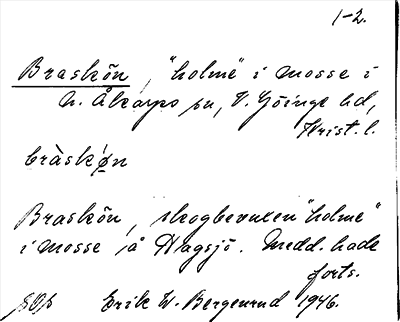 1-2.
Braskön, "holme" i mosse i
N. Åkarps sn, V. Göinge hd,
Krist. l.
bràskøn
Braskön, skogbevuxen "holme"
i mosse å Hagsjö. Medd. hade
forts.
Erik W. Bergenrud 1946.